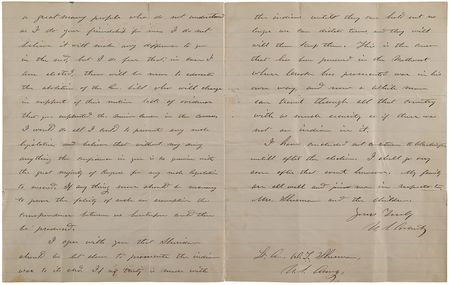 a great many people who do not understand
as I do your friendship for me. I do not
believe it will make any difference to you
in the end, but I do fear that, in case I
am elected, there will be men to advocate
the abolition of the Gen. bill who will charge
in support of their motion lack of evidence
that you supported the Union cause in the canvass.
I would do all I could to prevent any such
legislation, and believe that without my saying
anything the confidence in you is too genuine with
the great majority of Congress for any such legislation
to succeed. If any thing more should be necessary
to prove the falsity of such an assumption the
correspondence between us heretofore could then
be produced.
I agree with you that Sheridan
should be left alone to prosecute the indian
war to its end. If no treaty is made with
the indians until they can hold out no
longer we can dictate terms and they will
then keep them. This is the course
that has been pursued in the Northwest
where Crook has prosecuted war in his
own way, and now a white man
can travel through all that country
with as much security as if there was
not an indian in it.
I have concluded not to return to Washington
until after the election. I shall go very
soon after that event however. My family
are all well and join me in respects to
Mrs. Sherman and the children.
Yours Truly
U. S. Grant
Lt. Gn. W. T. Sherman,
U. S. Army.